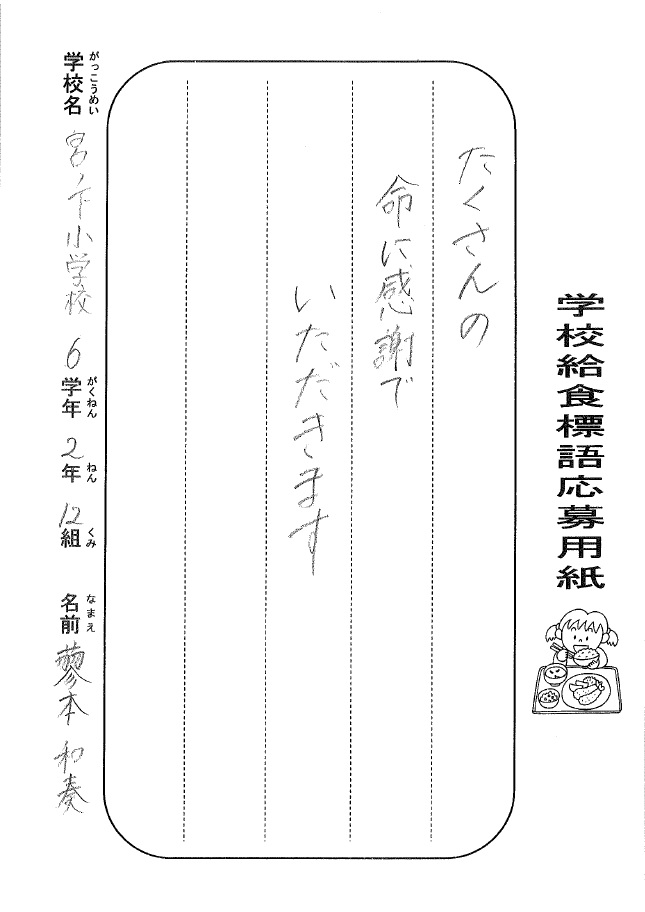 学校給食標語応募用紙
たくさんの
命に感謝で
いただきます
がっこうめい
学校名 宮ノ下小学校
がくねん
6学年
ねん
2年
くみ
12組
なまえ
名前 蓼本 和奏